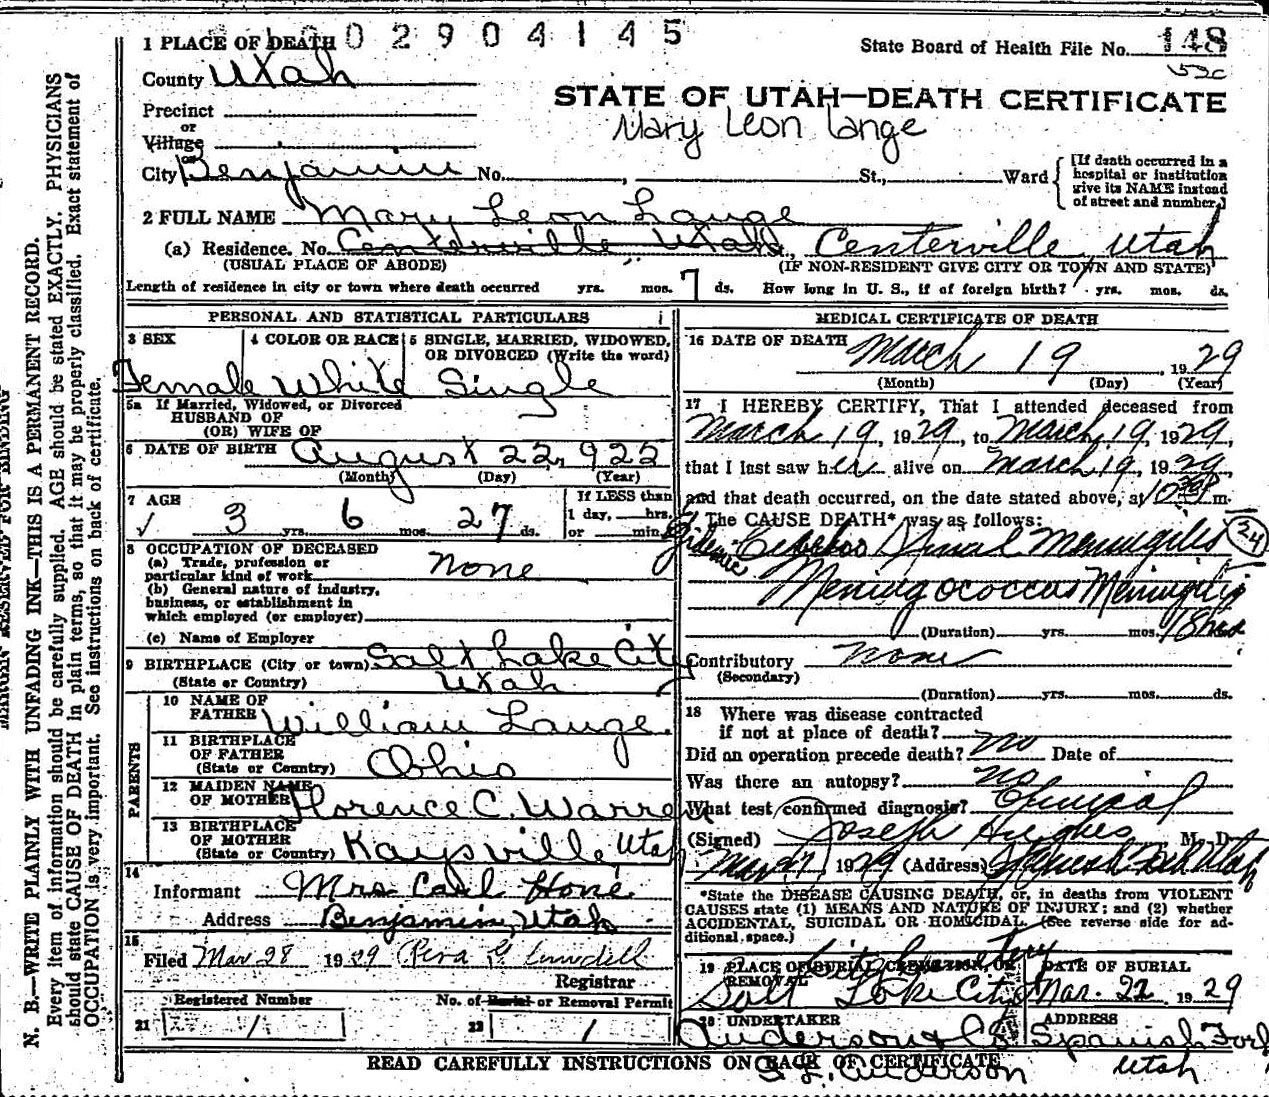 1 PLACE OF DEATH 0 0 2 9 0 4 1 4 5
State Board of Health File No. 148
County Utah
Precinct
or
Village
or
City Benjamin No. , St., Ward
[If death occurred in a hospital or institution give its NAME instead of street and number.]
STATE OF UTAH—DEATH CERTIFICATE
Mary Leon Lange
2 FULL NAME Mary Leon Lange
(a) Residence. No. Centerville Utah, Centerville, Utah
(USUAL PLACE OF ABODE) (IF NON-RESIDENT GIVE CITY OR TOWN AND STATE)
Length of residence in city or town where death occurred yrs. mos. 7 ds. How long in U. S., if of foreign birth? yrs. mos. ds.
PERSONAL AND STATISTICAL PARTICULARS
3 SEX
Female
4 COLOR OR RACE
White
5 SINGLE, MARRIED, WIDOWED,
OR DIVORCED (Write the word)
Single
5a If Married, Widowed, or Divorced
HUSBAND OF
(OR) WIFE OF
6 DATE OF BIRTH August 22, 922
(Month) (Day) (Year)
7 AGE
3 yrs. 6 mos. 27 ds.
If LESS than
1 day, hrs.
or min.
8 OCCUPATION OF DECEASED
(a) Trade, profession or
particular kind of work None
(b) General nature of industry,
business, or establishment in
which employed (or employer)
(c) Name of Employer
9 BIRTHPLACE (City or town) Salt Lake City
(State or Country) Utah
PARENTS
10 NAME OF
FATHER William Lange
11 BIRTHPLACE
OF FATHER
(State or Country) Ohio
12 MAIDEN NAME
OF MOTHER Florence C. Warren
13 BIRTHPLACE
OF MOTHER
(State or Country) Kaysville Utah
14
Informant Mrs Carl Hone
Address Benjamin, Utah
15
Filed Mar 28 1929
Registrar
Registered Number
21 1
No. of Burial or Removal Permit
22 1
MEDICAL CERTIFICATE OF DEATH
16 DATE OF DEATH March 19, 1929
(Month) (Day) (Year)
17 I HEREBY CERTIFY, That I attended deceased from
March 19, 1929, to March 19, 1929,
that I last saw her alive on March 19, 1929,
and that death occurred, on the date stated above, at 10 30 P m.
The CAUSE DEATH* was as follows:
Epidemic Cerebro Spinal Meningitis 24
Meningococcus Meningitis
(Duration) yrs. mos. 18 hrs
Contributory None
(Secondary)
(Duration) yrs. mos. ds.
18 Where was disease contracted
if not at place of death?
Did an operation precede death? no Date of
Was there an autopsy? no
What test confirmed diagnosis? Clinical
(Signed) Joseph Hughes M. D.
Mar 27, 1929 (Address) Spanish Fork Utah
*State the DISEASE CAUSING DEATH, or, in deaths from VIOLENT
CAUSES state (1) MEANS AND NATURE OF INJURY; and (2) whether
ACCIDENTAL, SUICIDAL OR HOMICIDAL. (See reverse side for ad-
ditional space.)
19 PLACE OF BURIAL, CREMATION, OR
REMOVAL City Cemetery
Salt Lake City
DATE OF BURIAL
Mar. 22 1929
20 UNDERTAKER
Anderson & Co
ADDRESS
Spanish Fork
Utah
READ CAREFULLY INSTRUCTIONS ON BACK OF CERTIFICATE
Anderson
MARGIN RESERVED FOR BINDING
N. B.—WRITE PLAINLY WITH UNFADING INK—THIS IS A PERMANENT RECORD.
Every item of information should be carefully supplied. AGE should be stated EXACTLY. PHYSICIANS
should state CAUSE OF DEATH in plain terms, so that it may be properly classified. Exact statement of
OCCUPATION is very important. See instructions on back of certificate.